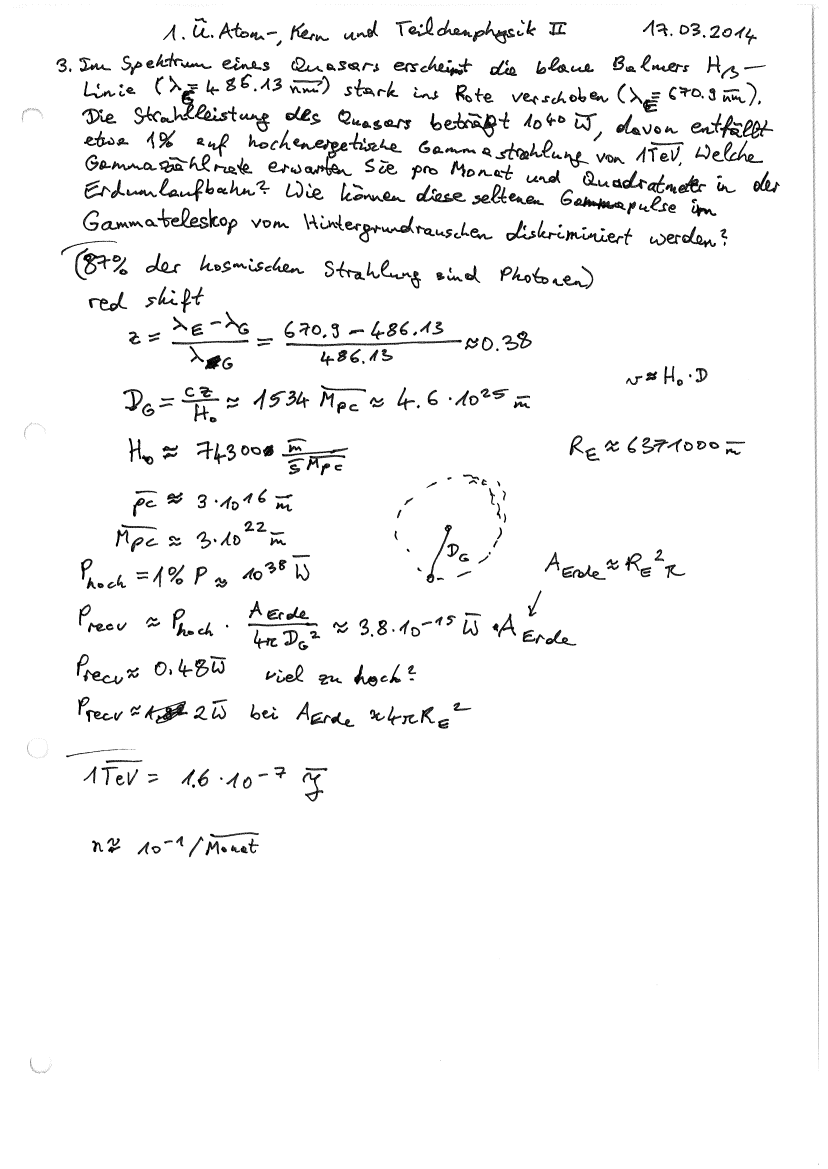 1. Ü. Atom-, Kern und Teilchenphysik II 17.03.2014
3. Im Spektrum eines Quasars erscheint die blaue Balmers Hβ-
Linie (λG = 486.13 nm) stark ins Rote verschoben (λE = 670.9 nm).
Die Strahlleistung des Quasars beträgt 10^40 W, davon entfällt
etwa 1% auf hochenergetische Gammastrahlung von 1TeV. Welche
Gammazählrate erwarten Sie pro Monat und Quadratmeter in der
Erdumlaufbahn? Wie können diese seltenen Gammapulse im
Gammateleskop vom Hintergrundrauschen diskriminiert werden?
(87% der kosmischen Strahlung sind Photonen)
red shift
z = (λE - λG)/λG = (670.9 - 486.13)/486.13 ≈ 0.38
v ≈ H₀ · D
DG = cz/H₀ ≈ 1534 Mpc ≈ 4.6 · 10^25 m
H₀ ≈ 74300 m/(s Mpc)
RE ≈ 6371000 m
pc ≈ 3 · 10^16 m
Mpc ≈ 3 · 10^22 m
DG
Phoch = 1% P ≈ 10^38 W
AErde ≈ RE² π
Precv ≈ Phoch · AErde/(4π DG²) ≈ 3.8 · 10^-15 W · AErde
Precv ≈ 0.48 W viel zu hoch?
Precv ≈ 2 W bei AErde ≈ 4π RE²
1 TeV = 1.6 · 10^-7 J
n ≈ 10^-1 / Monat